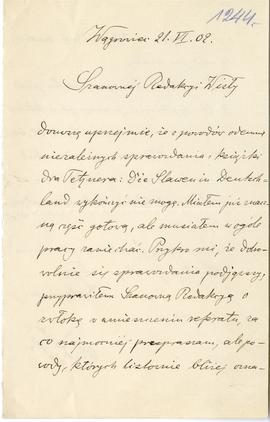 1244.
Wągrowiec 21. VI. 02.
Szanownéj Redakcyi Wisły
donoszę uprzejmie, że z powodów odemnie
niezależnych sprawozdania z książki
dra Tetznera: Die Slawen in Deutsch-
land wykończyć nie mogę. Miałem już znacz-
ną część gotową, ale musiałem w ogóle
pracy zaniechać. Przykro mi, że dobro-
wolnie się sprawozdania podjąwszy,
przyprawiłem Szanowną Redakcyą o
zwłokę w umieszczeniu referatu, za
co najmocniej przepraszam, ale powo-
dy, których listownie bliżej ozna-